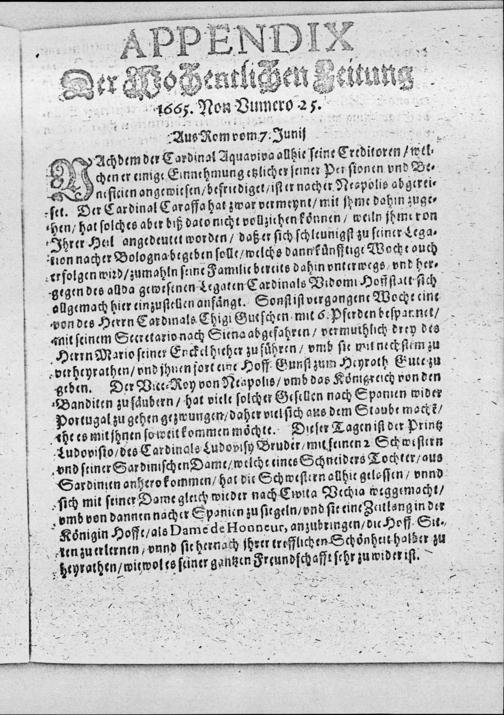 APPENDIX
Der Wochentlichen Zeitung
1665. Von Numero 25.
Aus Rom vom 7. Junij
NAchdem der Cardinal Aquaviva allhie seine Creditoren / wel-
chen er einige Einnehmung etzlicher seiner Pensionen und Be-
neficien angewiesen / befriediget / ist er nacher Neapolis abgerei-
set. Der Cardinal Caraffa hat zwar vermeynt / mit ihme dahin zuge-
hen / hat solches aber biß dato nicht vollziehen können / weiln ihme von
Ihrer Heil angedeutet worden / daß er sich schleunigst zu seiner Lega-
tion nacher Bologna begeben solle / welchs dann künfftige Woche auch
erfolgen wird / zumahln seine Familie bereits dahin unterwegs / und her-
gegen des allda gewesenen Legaten Cardinals Vidomi Hoffstatt sich
allgemach hier einzustellen anfängt. Sonst ist vergangene Woche eine
von des Herrn Cardinals Chigi Gutschen mit 6. Pferden bespannet /
mit seinem Secretario nach Siena abgefahren / vermuthlich drey des
Herrn Mario seiner Enckel hieher zu führen / umb sie mit nechstem zu
verheyrathen / und ihnen fort eine Hoff Gunst zum Heyrath Gute zu
geben. Der Vice-Roy von Neapolis / umb das Königreich von den
Banditen zu säubern / hat viele solcher Gesellen nach Spanien wider
Portugal zu gehen gezwungen / daher viel sich aus dem Staube machē /
ehe es mit ihnen so weit kommen möchte. Dieser Tagen ist der Printz
Ludovisio / des Cardinals Ludovisy Bruder / mit seinen 2 Schwestern
und seiner Sardinischen Dame / welche eines Schneiders Tochter / aus
Sardinien anhero kommen / hat die Schwestern allhie gelassen / unnd
sich mit seiner Dame gleich wieder nach Civita Vechia weggemacht /
umb von dannen nacher Spanien zu siegeln / und sie eine Zeitlang in der
Königin Hoffe / als Dame de Honneur, anzubringen / die Hoff-Sit-
ten zu erlernen / unnd sie hernach ihrer trefflichen Schönheit halber zu
heyrathen / wiewol es seiner gantzen Freundschafft sehr zu wider ist.